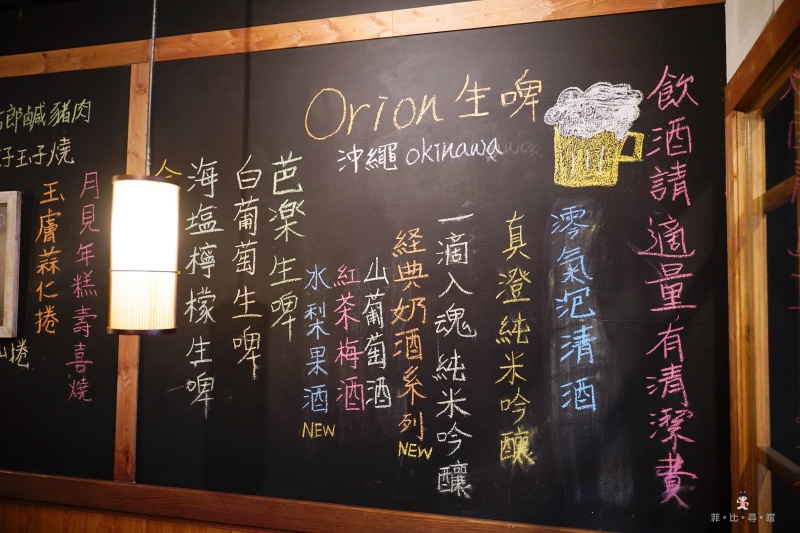 Orion 生啤
沖繩 okinawa
飲酒請適量有清潔費
澪氣泡清酒
真澄純米吟釀
一滴入魂純米吟釀
経典奶酒系列
NEW
山葡萄酒
紅茶梅酒
水梨果酒
NEW
芭楽生啤
白葡萄生啤
海塩檸檬生啤
金
郎鹹豬肉
子玉子燒
月見年糕壽喜燒
玉膚蒜仁捲
捲
菲·比·尋·嚐